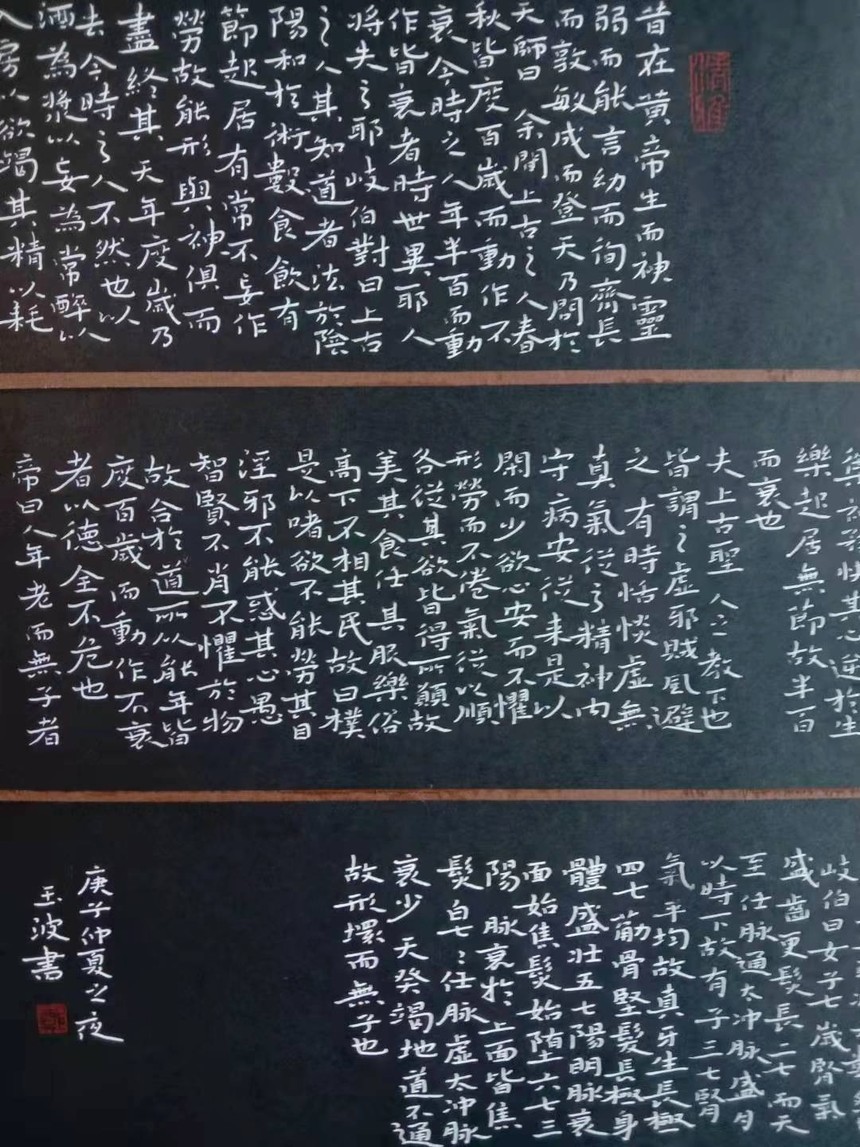 清雅
昔在黄帝生而神靈
弱而能言幼而徇齊長
而敦敏成而登天乃問於
天師曰余聞上古之人春
秋皆度百歲而動作不
衰今時之人年半百而動
作皆衰者時世異耶人
將失之耶岐伯對曰上古
之人其知道者法於陰
陽和於術數食飲有
節起居有常不妄作
勞故能形與神俱而
盡終其天年度歲乃
去今時之人不然也以
酒為漿以妄為常醉以
入房以欲竭其精以耗
快其心逆於生
樂起居無節故半百
而衰也
夫上古聖人之教下也
皆謂之虛邪賊風避
之有時恬惔虛無
真氣從之精神內
守病安從来是以
閑而少欲心安而不懼
形勞而不倦氣從以順
各從其欲皆得所願故
美其食任其服樂俗
高下不相其民故曰樸
是以嗜欲不能勞其目
淫邪不能惑其心愚
智賢不肖不懼於物
故合於道所以能年皆
度百歲而動作不衰
者以德全不危也
帝曰人年老而無子者
岐伯曰女子七歲腎氣
盛齒更髮長二七而天
至任脉通太冲脉盛月
以時下故有子三七腎
氣平均故真牙生長極
四七筋骨堅髮長極身
體盛壯五七陽明脉衰
面始焦髮始堕六七三
陽脉衰於上面皆焦
髮白七七任脉虛太冲脉
衰少天癸竭地道不通
故形壞而無子也
庚子仲夏之夜
玉波書